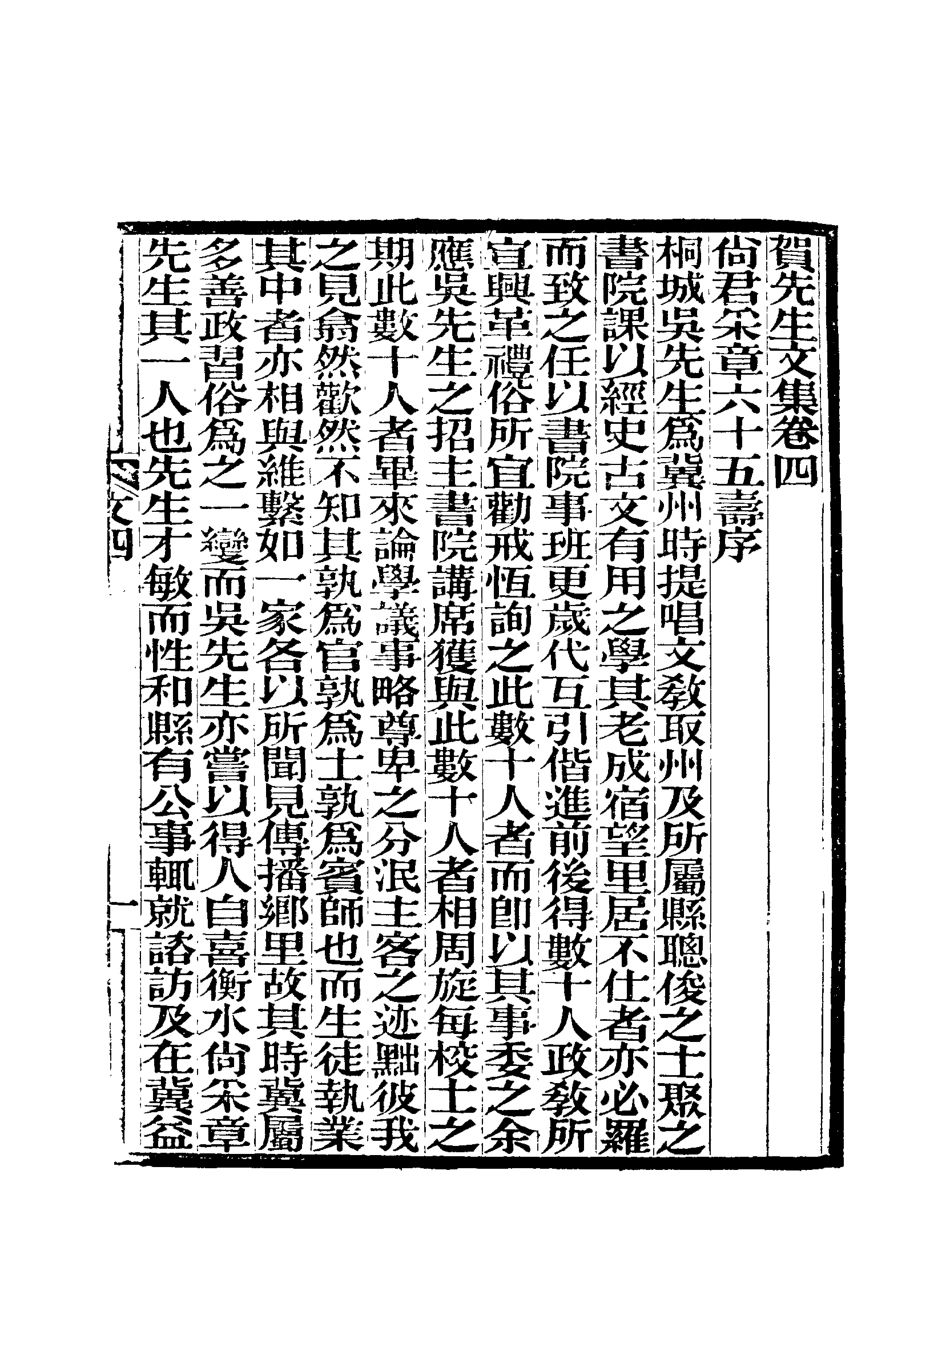 賀先生文集卷四
尙君采章六十五壽序
桐城吳先生爲冀州時提唱文敎取州及所屬縣聰俊之士聚之
書院課以經史古文有用之學其老成宿望里居不仕者亦必羅
而致之任以書院事班更歲代互引偕進前後得數十人政敎所
宜興革禮俗所宜勸戒恆詢之此數十人者而卽以其事委之余
應吳先生之招主書院講席獲與此數十人者相周旋每校士之
期此數十人者畢來論學議事略尊卑之分泯主客之迹黜彼我
之見翕然歡然不知其孰爲官孰爲士孰爲賓師也而生徒執業
其中者亦相與維繫如一家各以所聞見傳播鄉里故其時冀屬
多善政習俗爲之一變而吳先生亦嘗以得人自喜衡水尙采章
先生其一人也先生才敏而性和縣有公事輒就諮訪及在冀益
文四
一